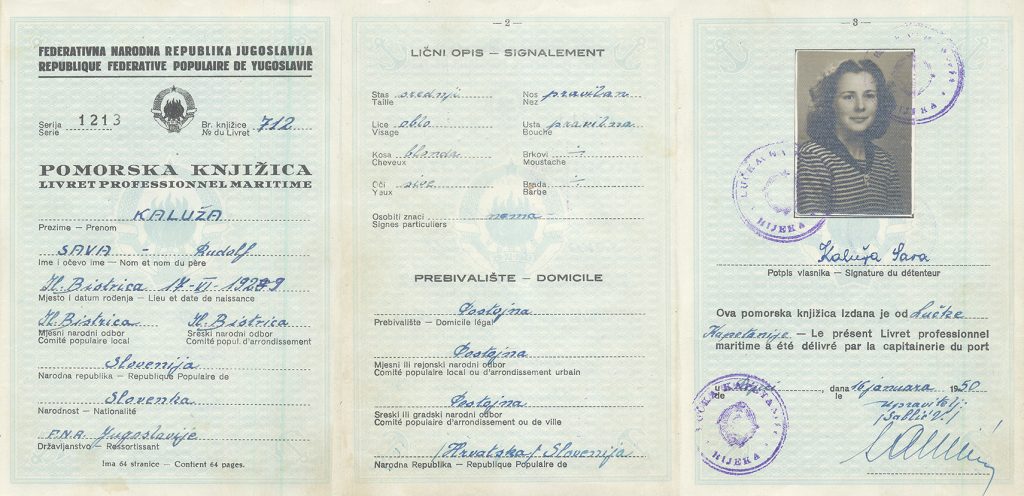 FEDERATIVNA NARODNA REPUBLIKA JUGOSLAVIJA
REPUBLIQUE FEDERATIVE POPULAIRE DE YUGOSLAVIE
Serija 1213 Br. knjižice 712
Serie № du Livret
POMORSKA KNJIŽICA
LIVRET PROFESSIONNEL MARITIME
KALUŽA
Prezime – Prenom
SAVA – Rudolf
Ime i očevo ime – Nom et nom du père
Il. Bistrica 17-VI-1929
Mjesto i datum rođenja – Lieu et date de naissance
Il. Bistrica Il. Bistrica
Mjesni narodni odbor Sreski narodni odbor
Comité populaire local Comité popul. d'arrondissement
Slovenija
Narodna republika – Republique Populaire de
Slovenka
Narodnost – Nationalité
F.N.R. Jugoslavije
Državljanstvo – Ressortissant
Ima 64 stranice – Contient 64 pages.
— 2 —
LIČNI OPIS – SIGNALEMENT
Stas srednji Nos pravilan
Taille Nez
Lice oblo Usta pravilna
Visage Bouche
Kosa blonda Brkovi ÷
Cheveux Moustache
Oči sive Brada ÷
Yeux Barbe
Osobiti znaci nema –
Signes particuliers
PREBIVALIŠTE – DOMICILE
Postojna
Prebivalište – Domicile légal
Postojna
Mjesni ili rejonski narodni odbor
Comité populaire local ou d'arrondissement urbain
Postojna
Sreski ili gradski narodni odbor
Comité populaire d'arrondissement ou de ville
/Hrvatska/ Slovenija
Narodna Republika – Republique Populaire de
— 3 —
RIJEKA
LUČKA
RIJEKA
Kaluža Sava
Potpis vlasnika – Signature du détenteur
Ova pomorska knjižica izdana je od Lučke
Kapetanije – Le présent Livret professionnel
maritime a été délivré par la capitainerie du port
u Rijeci, dana 16 januara 1950
de le
Upravitelj
LUČKA KAPETANIJA
RIJEKA